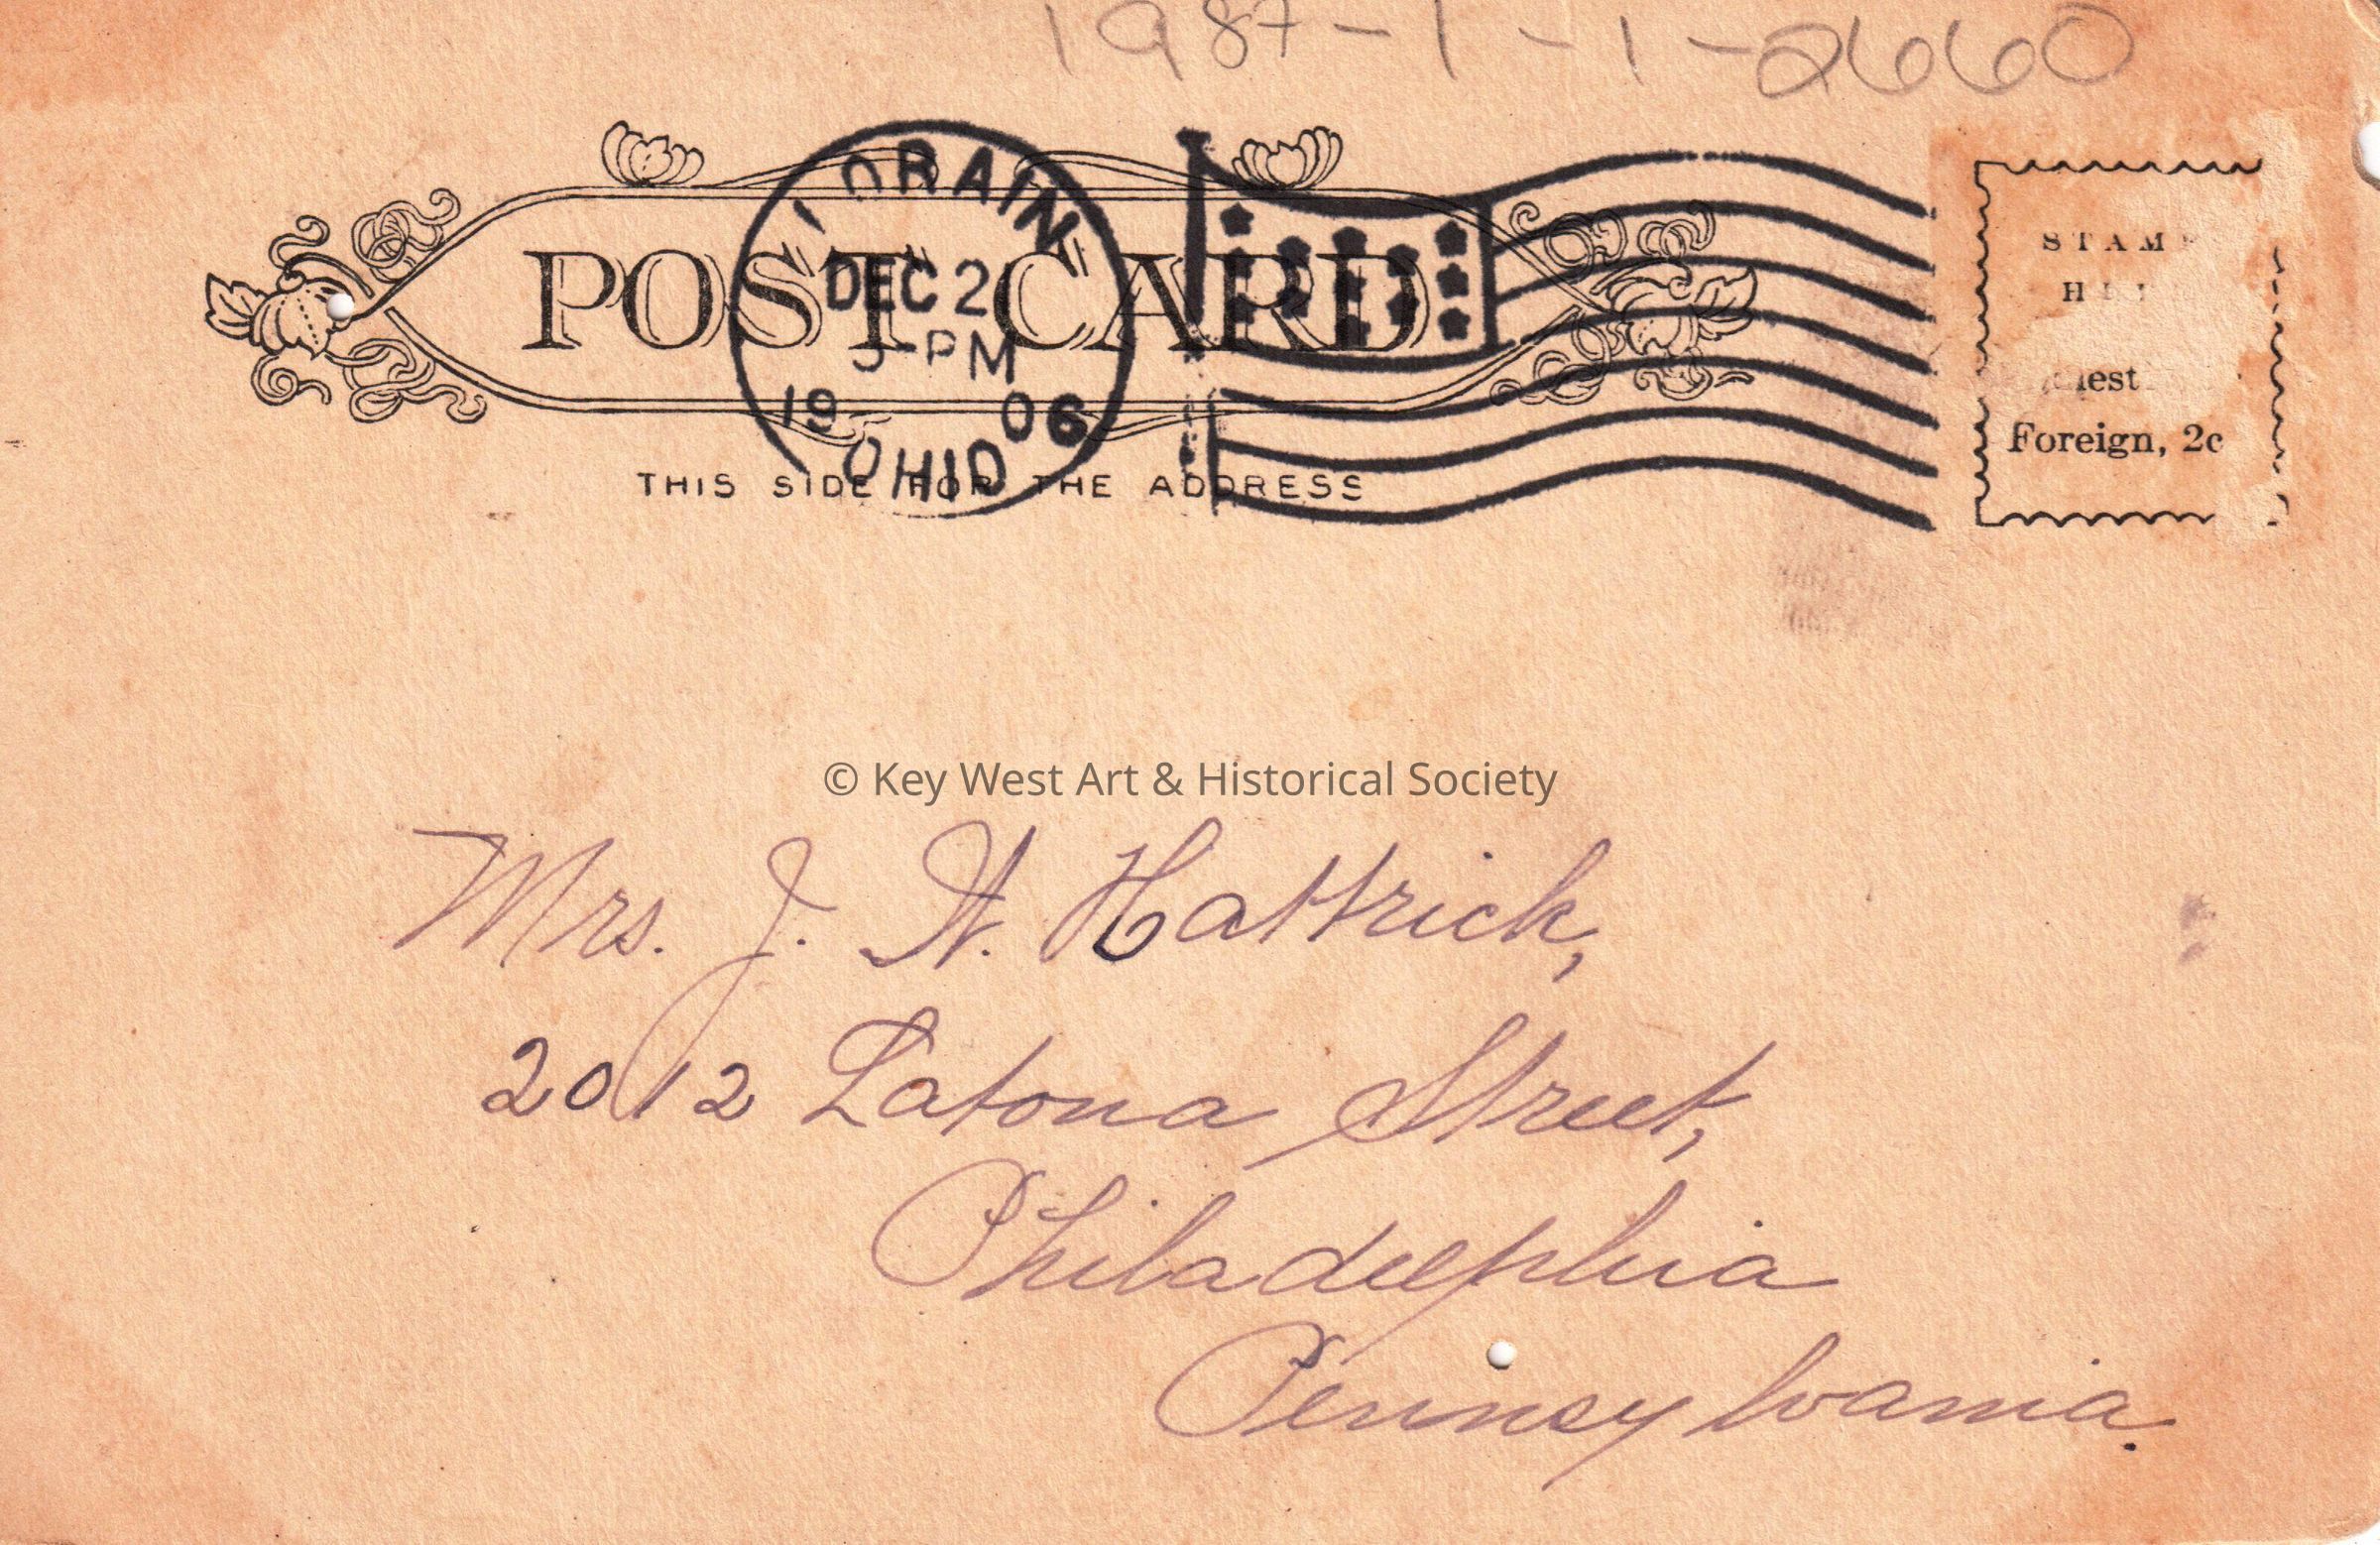 1987-1-1-2660
POST CARD
LORAIN
DEC 2
PM
1906
OHIO
THIS SIDE FOR THE ADDRESS
STAMP
Foreign, 2c
© Key West Art & Historical Society
Mrs. J. H. Hattrick,
2012 Latona Street,
Philadelphia
Pennsylvania.